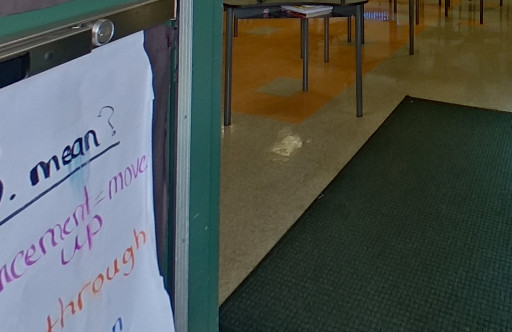 . mean?
ncement = move
up
through